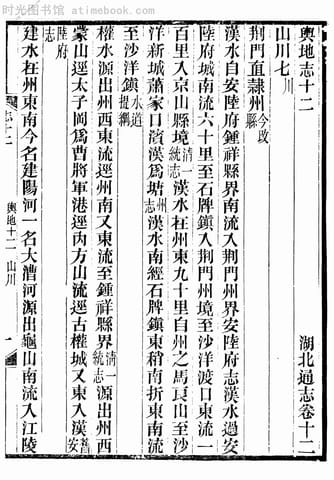 时光图书馆 - www.atimebook.com
輿地志十二　湖北通志卷十二
山川七川
荆門直隷州今改縣
漢水自安陸府鍾祥縣界南流入荆門州界安陸府志漢水過安
陸府城南流六十里至石牌鎭入荆門州境至沙洋渡口東流一
百里入京山縣境清一統志漢水在州東九十里自州之馬良山至沙
洋新城蕭家口濱漢爲塘州志漢水南經石牌鎭東稍南折東南流
至沙洋鎭水道提綱
權水源出州西東流逕州南又東流至鍾祥縣界清一統志源出州西
蒙山逕太子岡爲曹將軍港逕内方山流逕古權城又東入漢舊安
陸府志
建水在州東南今名建陽河一名大漕河源出龜山南流入江陵
志十二　輿地十二　山川　一